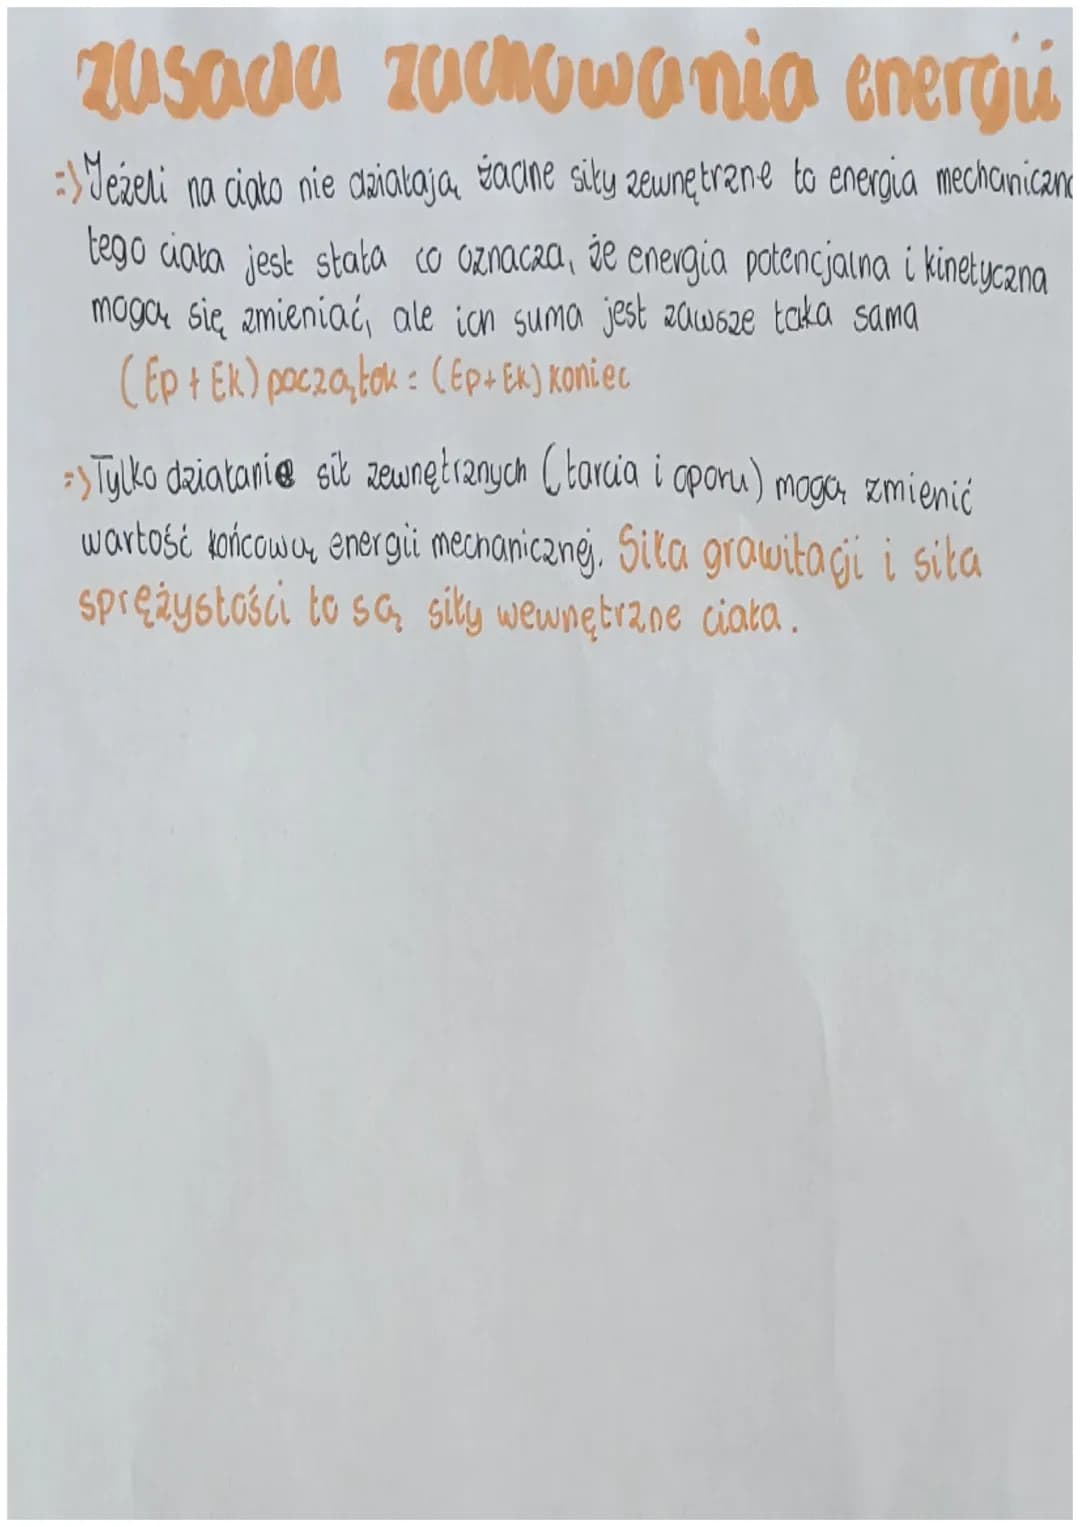 zasada zachowania energii
=> Jeżeli na ciało nie działają żadne siły zewnętrzne to energia mechaniczna
tego ciała jest stała co oznacza, że energia potencjalna i kinetyczna
mogą się zmieniać, ale ich suma jest zawsze taka sama
(Ep + Ek) początok = (Ep + Ek) koniec
=> Tylko działanie sił zewnętrznych (tarcia i oporu) mogą zmienić
wartość końcową energii mechanicznej. Siła grawitacji i siła
sprężystości to są siły wewnętrzne ciała.